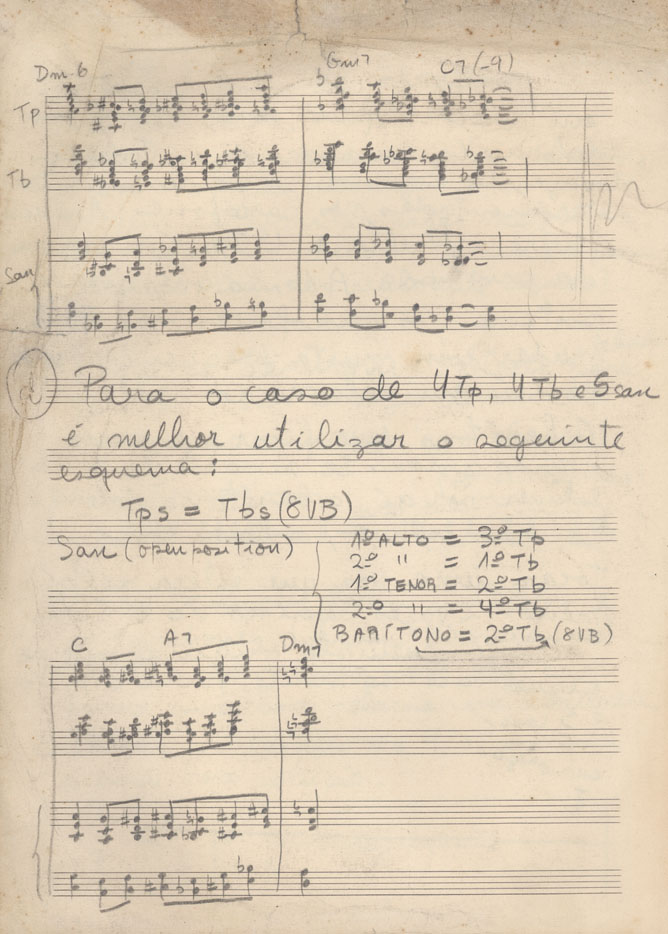 Dm 6 Gm7 C7(-9)
Tp
Tb
Sax
2 Para o caso de 4Tp, 4Tb e 5sax
é melhor utilizar o seguinte
esquema:
Tps = Tbs (8VB)
Sax (open position)
1º ALTO = 3º Tb
2º " = 1º Tb
1º TENOR = 2º Tb
2º " = 4º Tb
BARÍTONO = 2º Tb (8VB)
C A7 Dm7